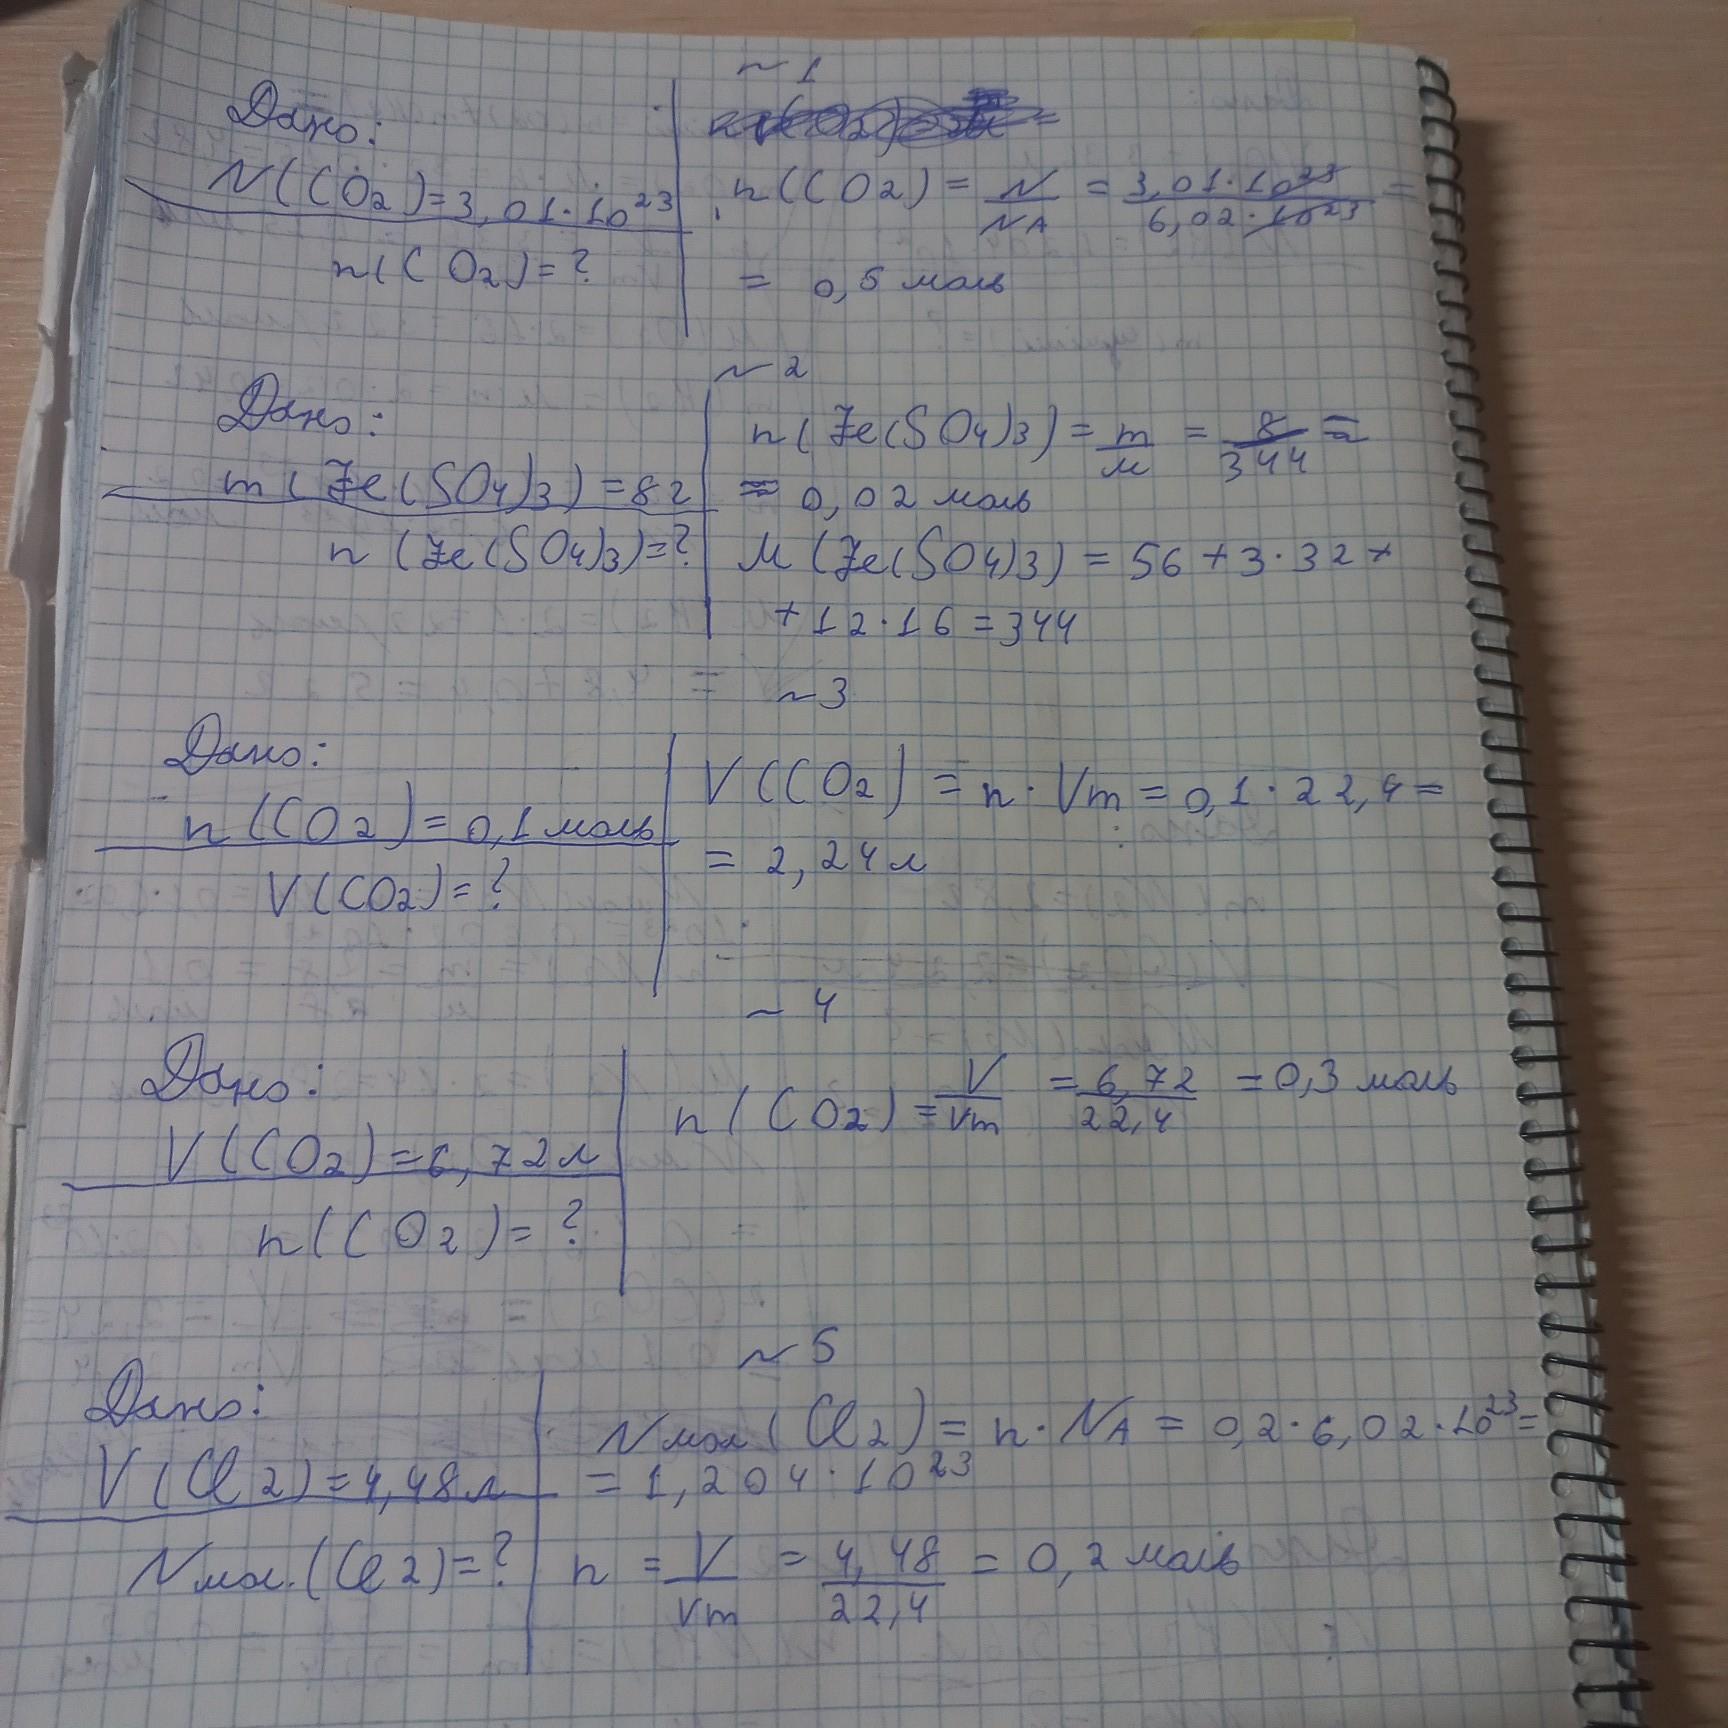 ~ 1
Дано:
N(CO2)=3,01·10²³
n(CO2)=?
n(CO2) = N/NA = 3,01·10²³/6,02·10²³ =
= 0,5 моль
~ 2
Дано:
m(Fe(SO4)3)=8г
n(Fe(SO4)3)=?
n(Fe(SO4)3) = m/M = 8/344 ≈
≈ 0,02 моль
M(Fe(SO4)3) = 56 + 3·32 +
+ 12·16 = 344
~ 3
Дано:
n(CO2)=0,1моль
V(CO2)=?
V(CO2) = n·Vm = 0,1·22,4 =
= 2,24л
~ 4
Дано:
V(CO2)=6,72л
n(CO2)=?
n(CO2) = V/Vm = 6,72/22,4 = 0,3 моль
~ 5
Дано:
V(Cl2)=4,48л
Nмол.(Cl2)=?
Nмол(Cl2) = n·NA = 0,2·6,02·10²³ =
= 1,204·10²³
n = V/Vm = 4,48/22,4 = 0,2 моль